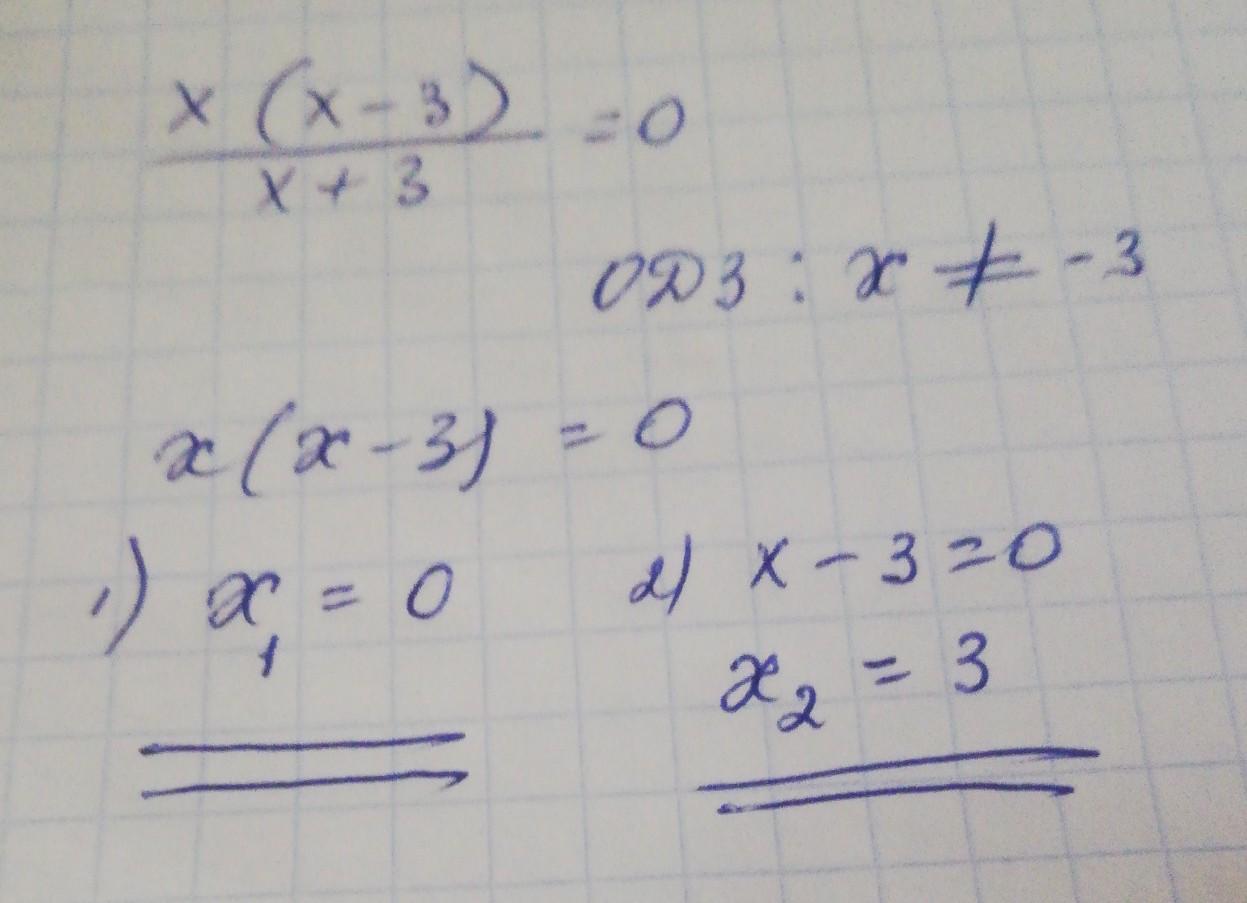 x (x - 3)
x + 3
= 0
ОДЗ : x ≠ - 3
x (x - 3) = 0
1) x₁ = 0
2) x - 3 = 0
x₂ = 3